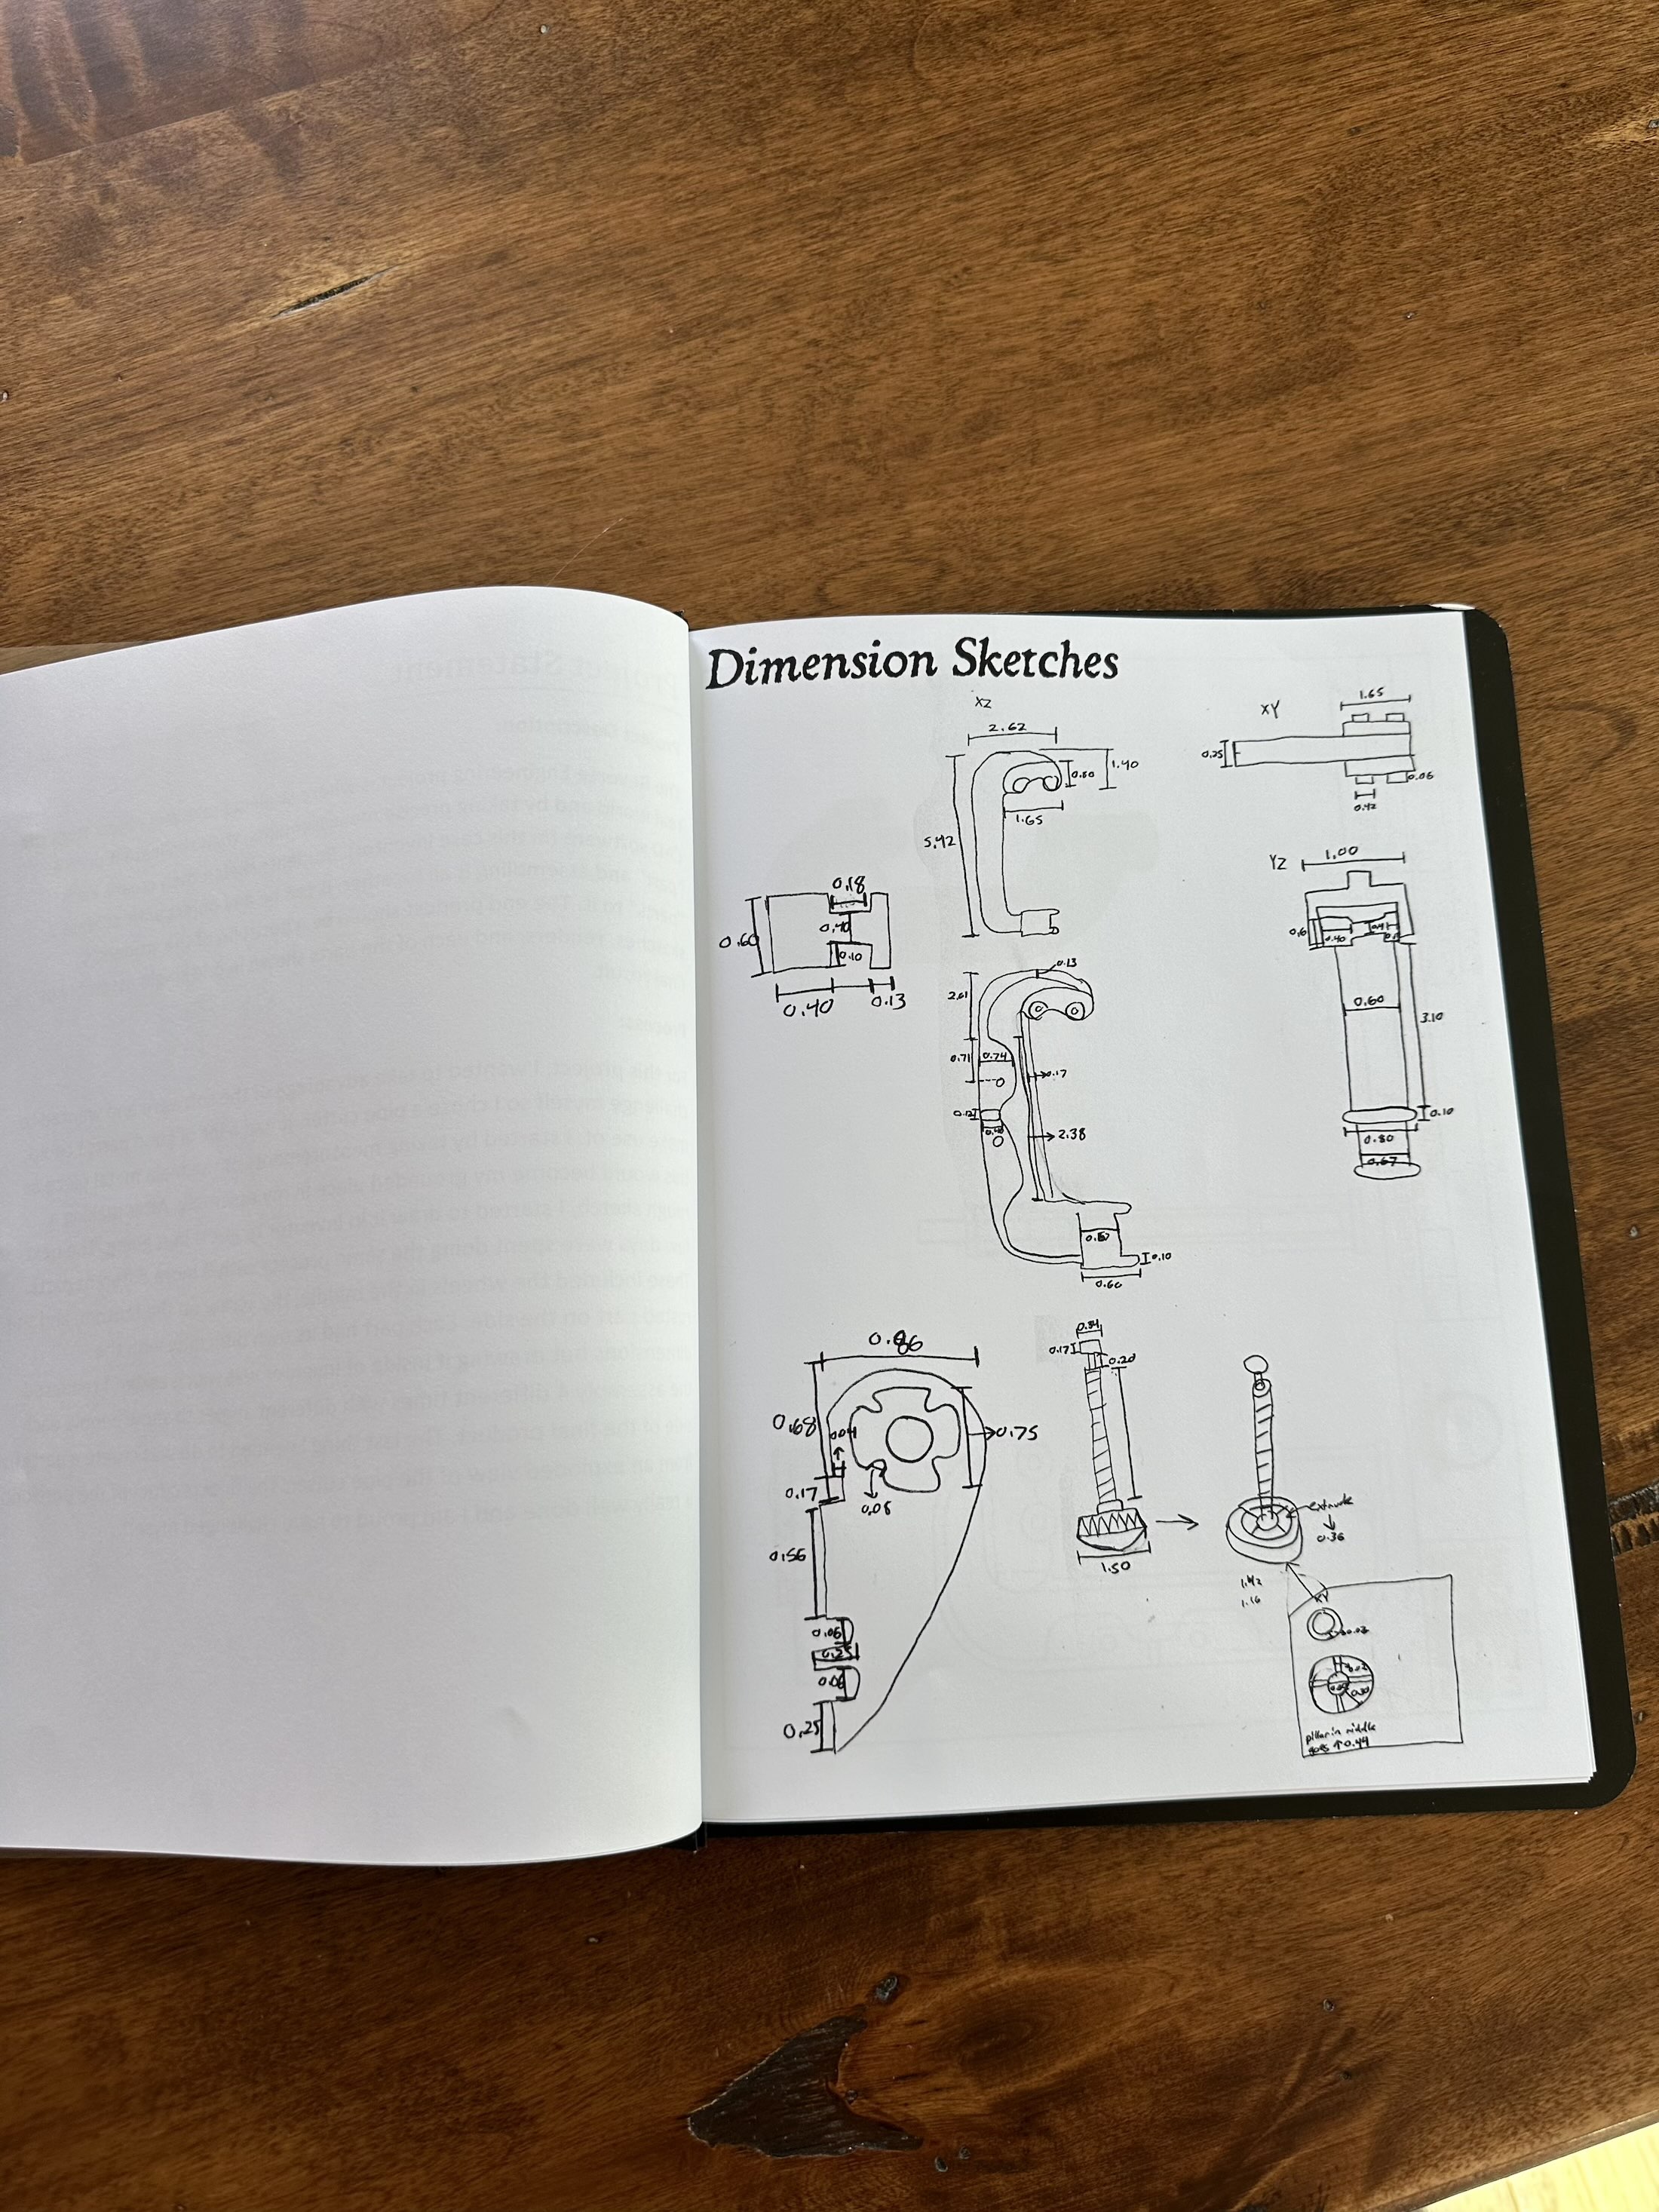 Dimension Sketches
XZ
2.62
0.80
1.40
1.65
5.42
XY
1.65
0.25
0.06
0.42
YZ
1.00
0.40
0.60
3.10
0.10
0.80
0.67
0.18
0.60
0.40
0.10
0.40
0.13
0.13
2.01
0.71
0.74
0.17
0.12
2.38
0.10
0.60
0.86
0.68
0.04
0.75
0.17
0.08
0.56
0.06
0.25
0.06
0.25
0.34
0.17
0.20
1.50
extrude
0.36
1.42
1.16
XY
pillar in middle
goes ↑ 0.44